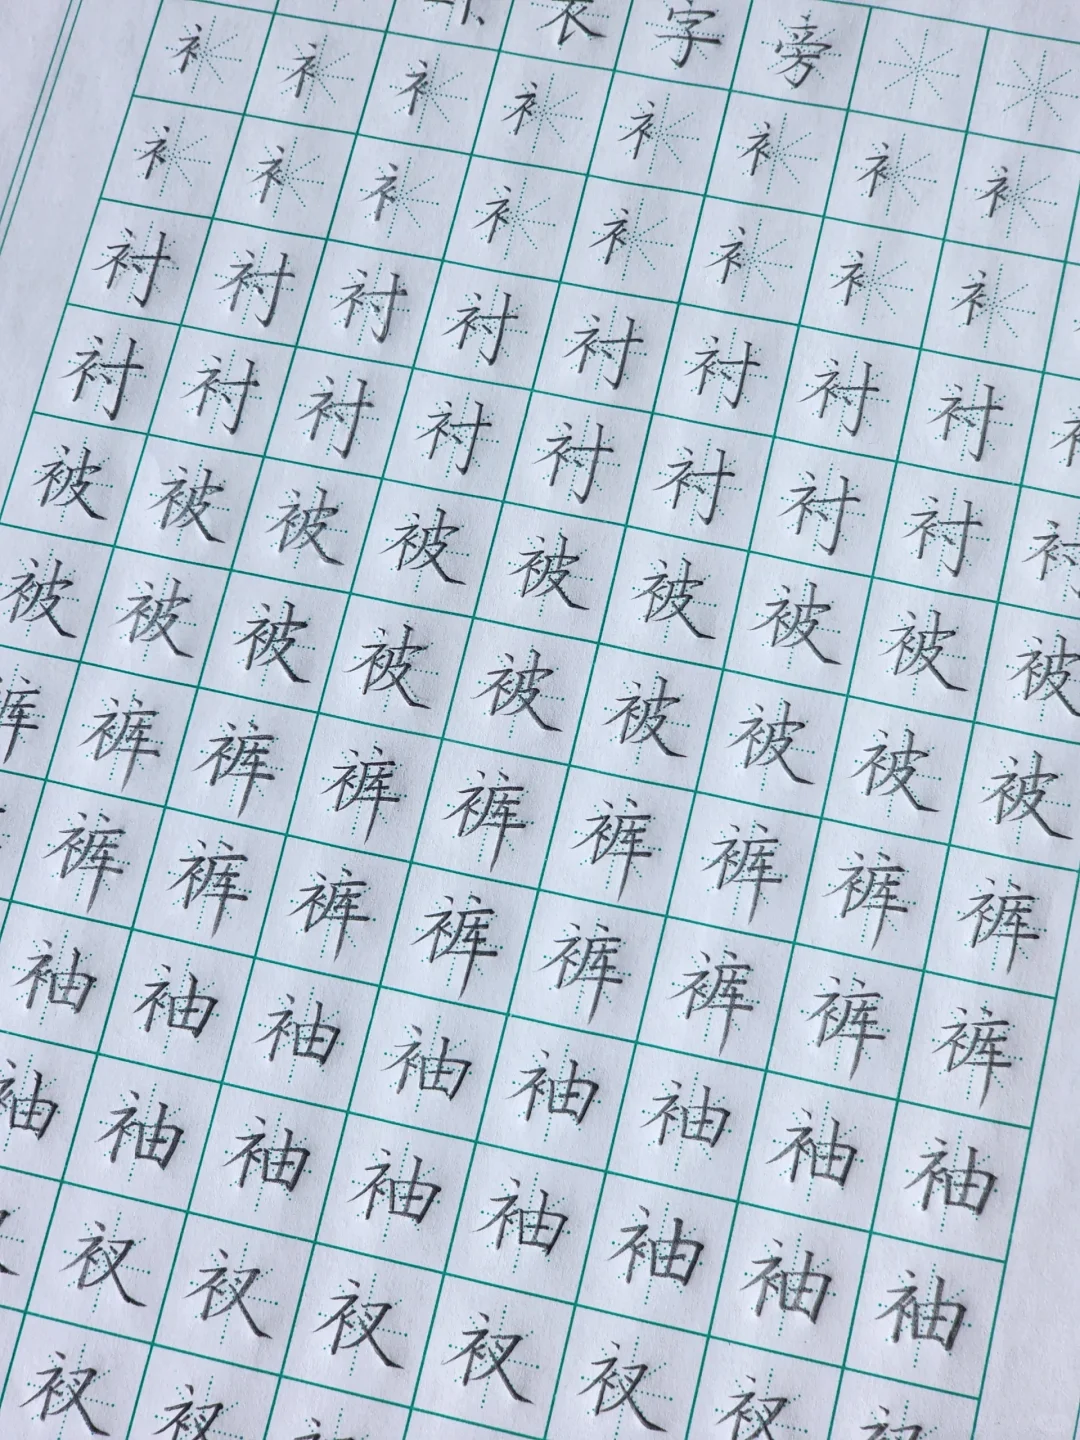 衣字旁
衤衤衤衤衤衤衤衤
衤衤衤衤衤衤衤衤
衬衬衬衬衬衬衬衬
衬衬衬衬衬衬衬衬衬
被被被被被被被被被
被被被被被被被被被
裤裤裤裤裤裤裤裤裤
裤裤裤裤裤裤裤裤
袖袖袖袖袖袖袖袖
袖袖袖袖袖袖袖袖
衩衩衩衩衩衩
衩衩